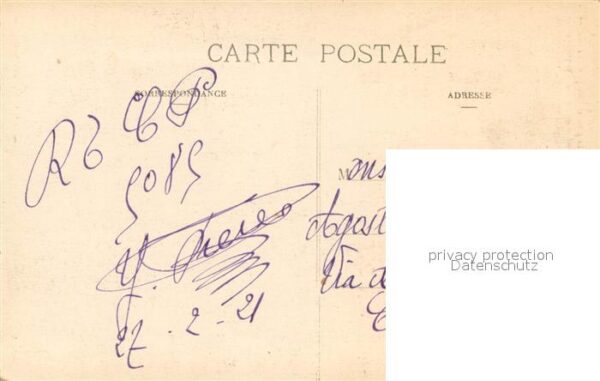 CARTE POSTALE
CORRESPONDANCE
ADRESSE
5085
27-2-21
M ons
Agost
Via d
privacy protection
Datenschutz